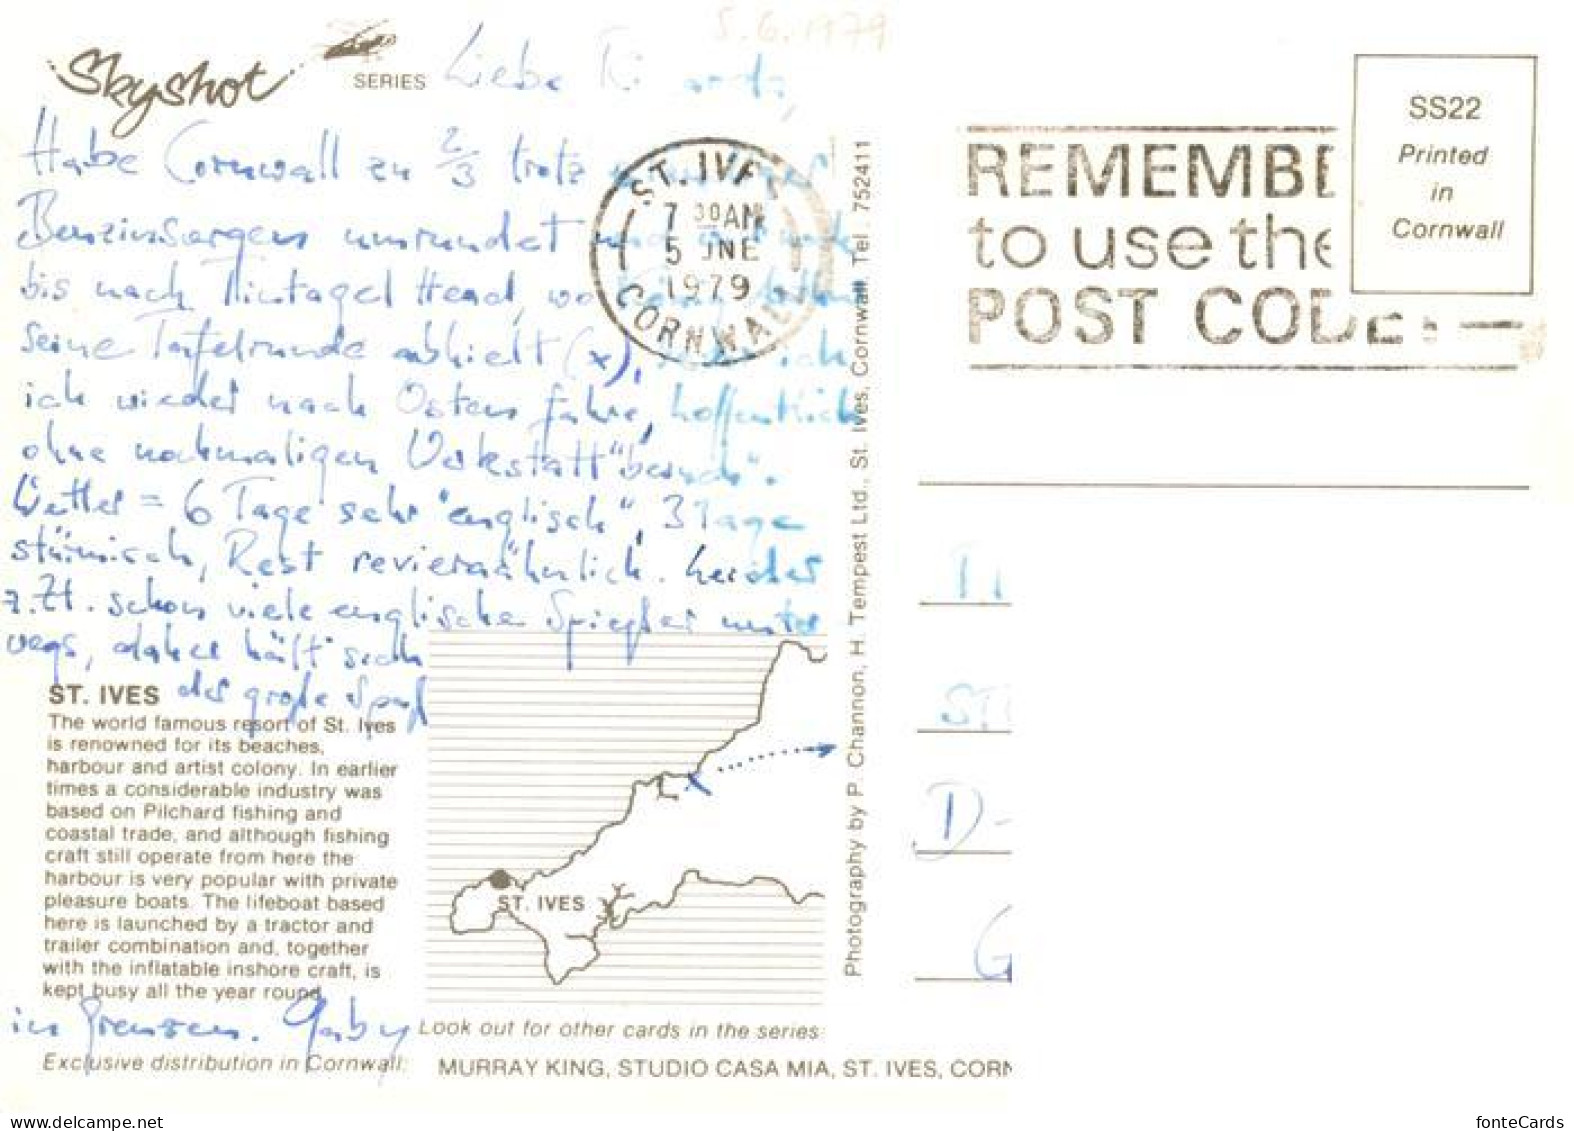 5.6.1979
Skyshot SERIES
Liebe
Habe Cornwall zu 2/3 trotz
Benzinsorgen umrundet und
bis nach Tintagel Head, wo König Arthur
seine Tafelrunde abhielt (x), ich
ich wieder nach Osten fahre, hoffentlich
ohne nochmaligen Werkstatt"besuch".
Wetter = 6 Tage sehr "englisch", 3 Tage
stürmisch, Rest revierähnlich. Leider
z.Zt. schon viele englische Spießer unter
wegs, daher hält sich
der große Spaß
in Grenzen. Gaby
ST. IVES
The world famous resort of St. Ives
is renowned for its beaches,
harbour and artist colony. In earlier
times a considerable industry was
based on Pilchard fishing and
coastal trade, and although fishing
craft still operate from here the
harbour is very popular with private
pleasure boats. The lifeboat based
here is launched by a tractor and
trailer combination and, together
with the inflatable inshore craft, is
kept busy all the year round.
ST. IVES
Look out for other cards in the series
Exclusive distribution in Cornwall:
MURRAY KING, STUDIO CASA MIA, ST. IVES, CORN
Photography by P. Channon, H. Tempest Ltd., St. Ives, Cornwall. Tel. 752411
ST. IVES
7 30 AM
5 JNE
1979
CORNWALL
REMEMBE
to use the
POST CODE
SS22
Printed
in
Cornwall
D-
G
www.delcampe.net
fonteCards